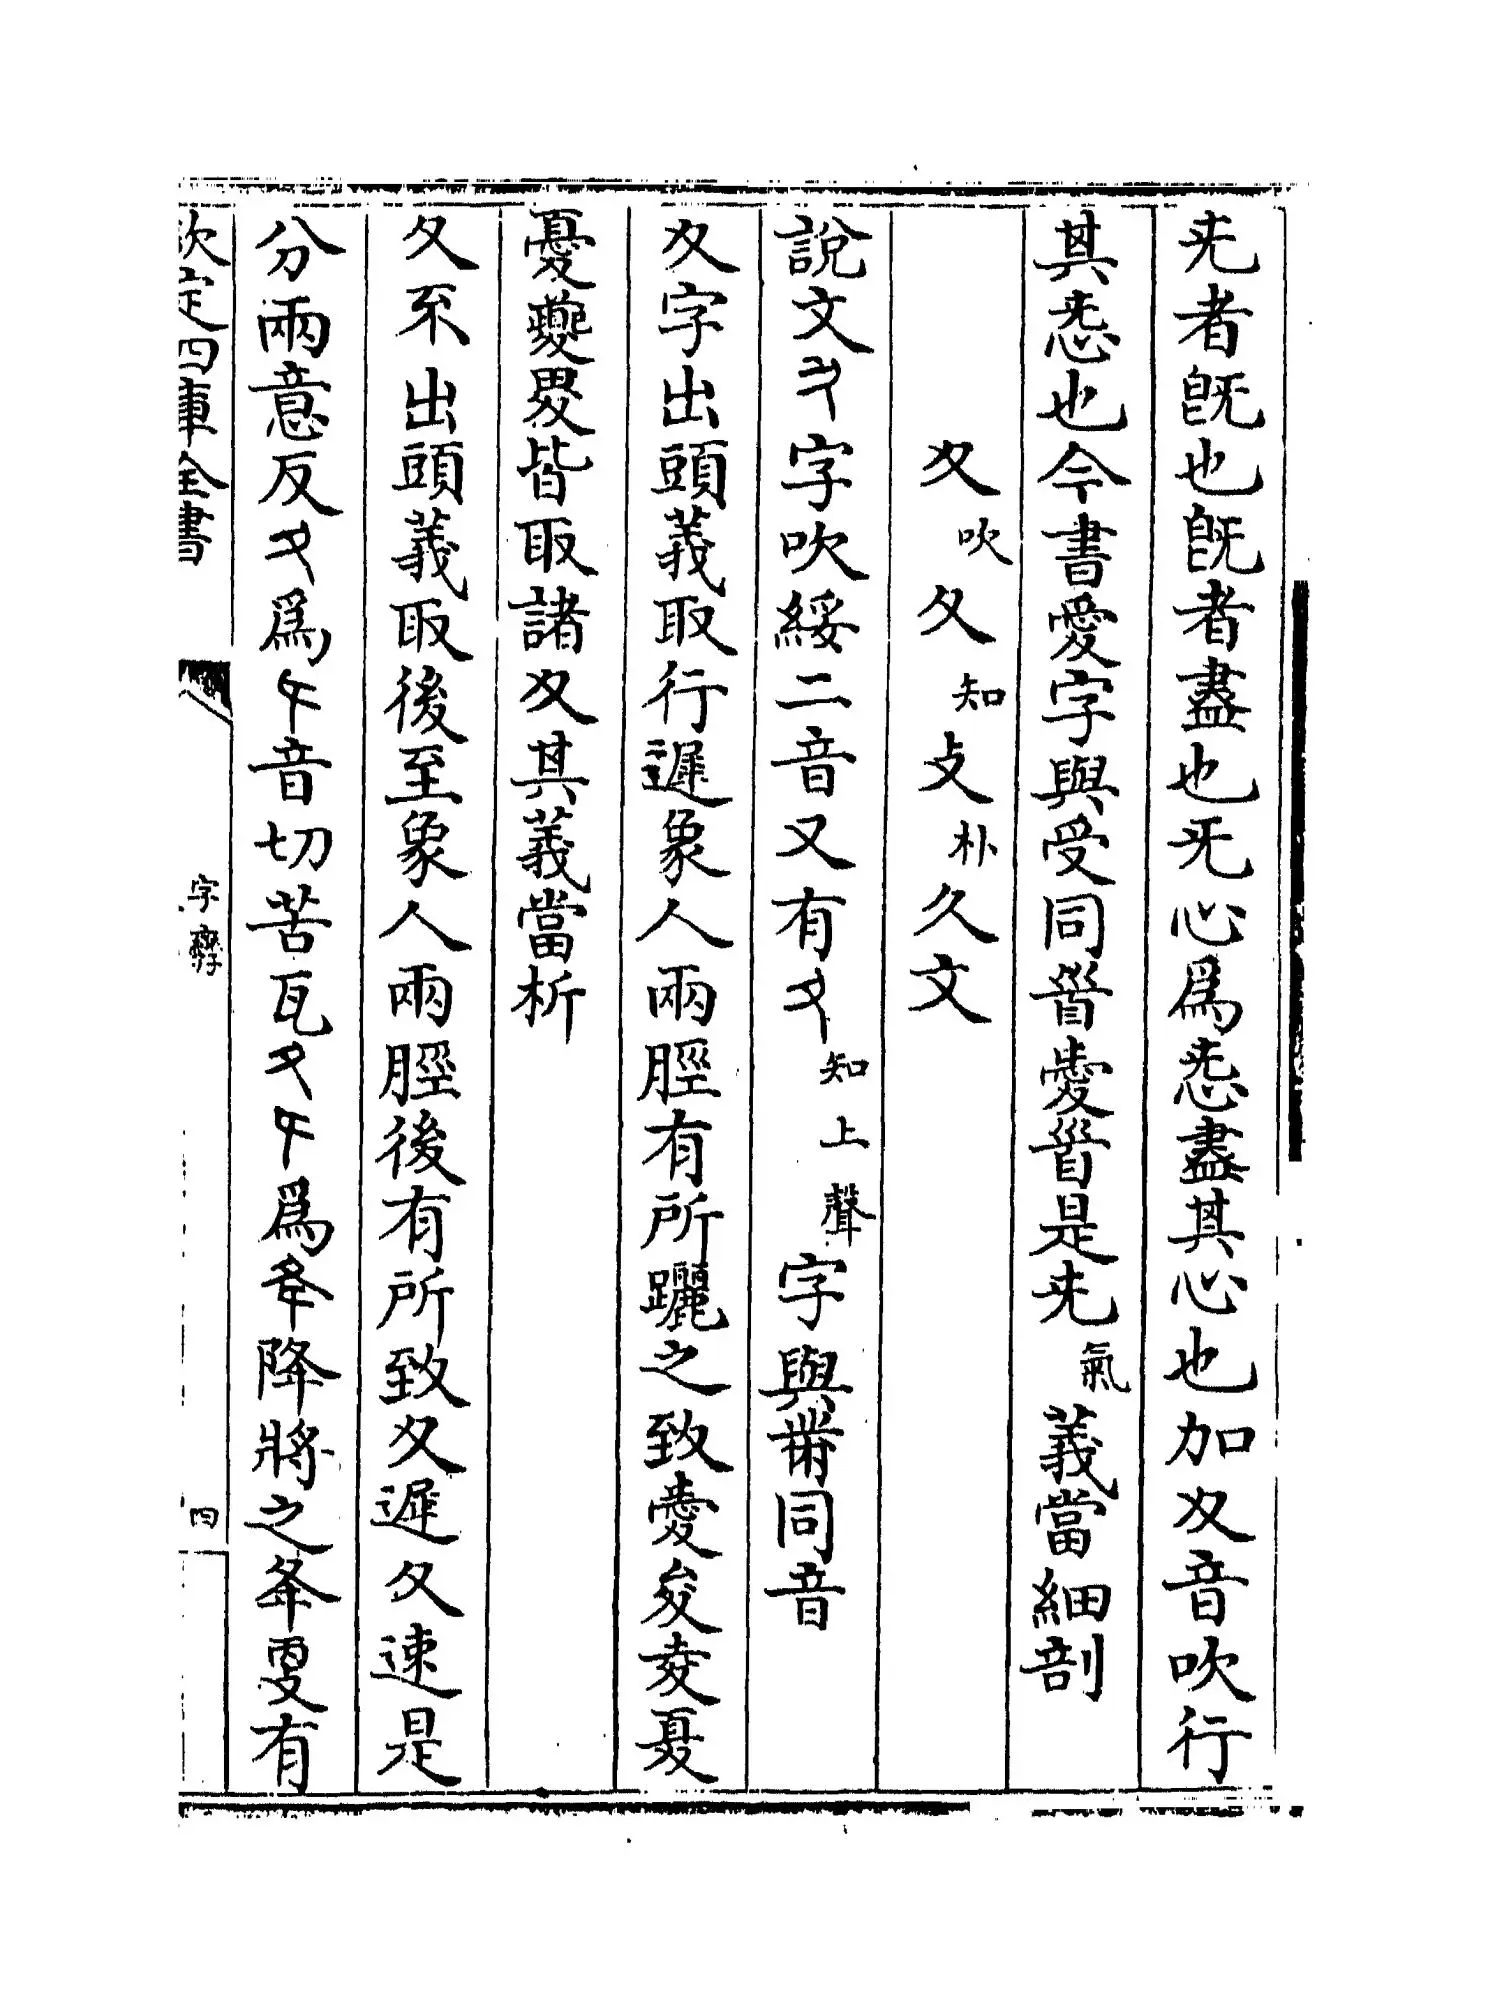 旡者旣也旣者盡也旡心爲㤅盡其心也加夊音吹行
其㤅也今書愛字與受同䈞愛䈞是旡氣義當細剖
夊吹夂知攴朴久文
說文字吹綏二音又有知上聲字與黹同音
夊字出頭義取行遲象人兩脛有所躧之致愛夋夌夏
憂夔畟皆取諸夊其義當析
夂不出頭義取後至象人兩脛後有所致夊遲夂速是
分兩意反爲㐄音切苦瓦㐄爲夅降將之夅㚆有
欽定四庫全書
字孿
四